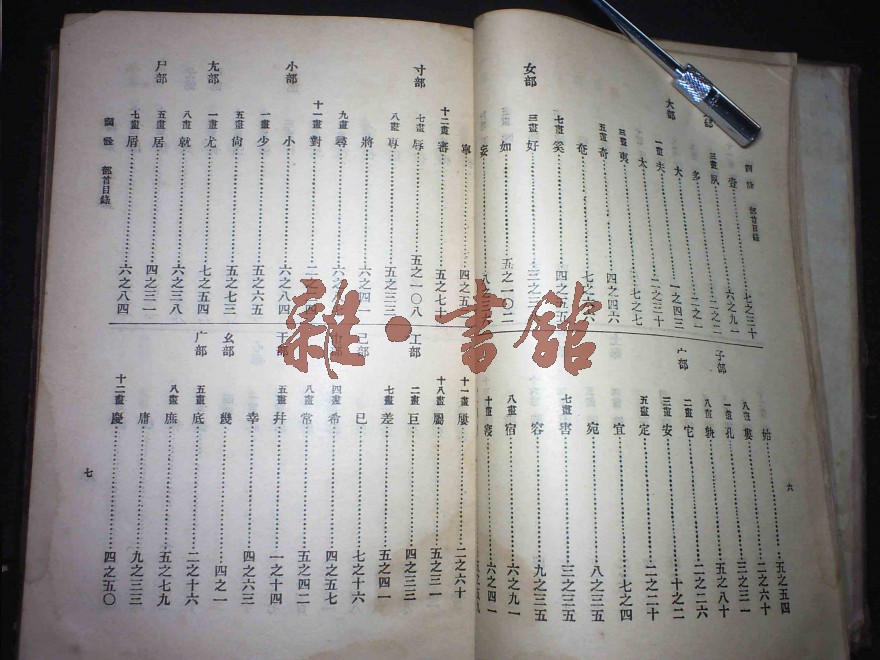 部首目錄
壹 七之三十
三畫 夙 六之九一
多 二之二一
大部
大 一之四三
一畫 夫 二之三十
太 七之七
三畫 夷
五畫 奇 四之四六
奄
七畫 奚 四之五五
女部
三畫 好
如 五之一〇二
妄
寧
十二畫 審 五之七十
寸部
七畫 辱 五之一〇八
八畫 專 五之三三
將 六之四一
九畫 尋
十一畫 對
小部
小 六之八四
一畫 少 五之六五
五畫 尚 五之七三
尢部
一畫 尤 七之五四
八畫 就 六之三八
尸部
五畫 居 四之三一
七畫 屑 六之八四
部首目錄
始 五之五四
八畫 婁 二之六十
子部
一畫 孔 三之三一
八畫 孰 五之八十
宀部
二畫 它 二之二六
三畫 安 十之二
五畫 定 二之二十
宜 七之四
宛 八之三五
七畫 害 三之三五
容 九之三五
八畫 宿 六之九一
十畫 寢 六之四一
十一畫 屢 二之六十
十八畫 屬 五之三一
工部
二畫 巨 四之三三
七畫 差 五之四一
己部
已 七之十六
四畫 希 四之五七
八畫 常 五之四二
干部
五畫 幷 一之十四
幸 四之六三
幺部
幾 四之一
广部
五畫 底 二之十六
八畫 庶 五之七九
庸 九之三三
十二畫 慶 四之五〇
六
七
雜·書舘